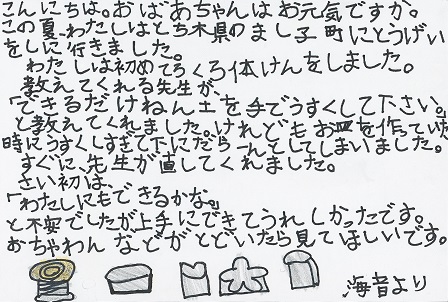 こんにちは。おばあちゃんはお元気ですか。
この夏、わたしはとち木県のまし子町にとうげい
をしに行きました。
わたしは初めてろくろ体けんをしました。
教えてくれる先生が、
「できるだけねん土を手でうすくして下さい。」
と教えてくれました。けれどもお皿を作っていた
時にうすくしすぎて下にだら〜んとしてしまいました。
すぐに、先生が直してくれました。
さい初は、
「わたしにもできるかな。」
と不安でしたが上手にできてうれしかったです。
おちゃわんなどがとどいたら見てほしいです。
海音より